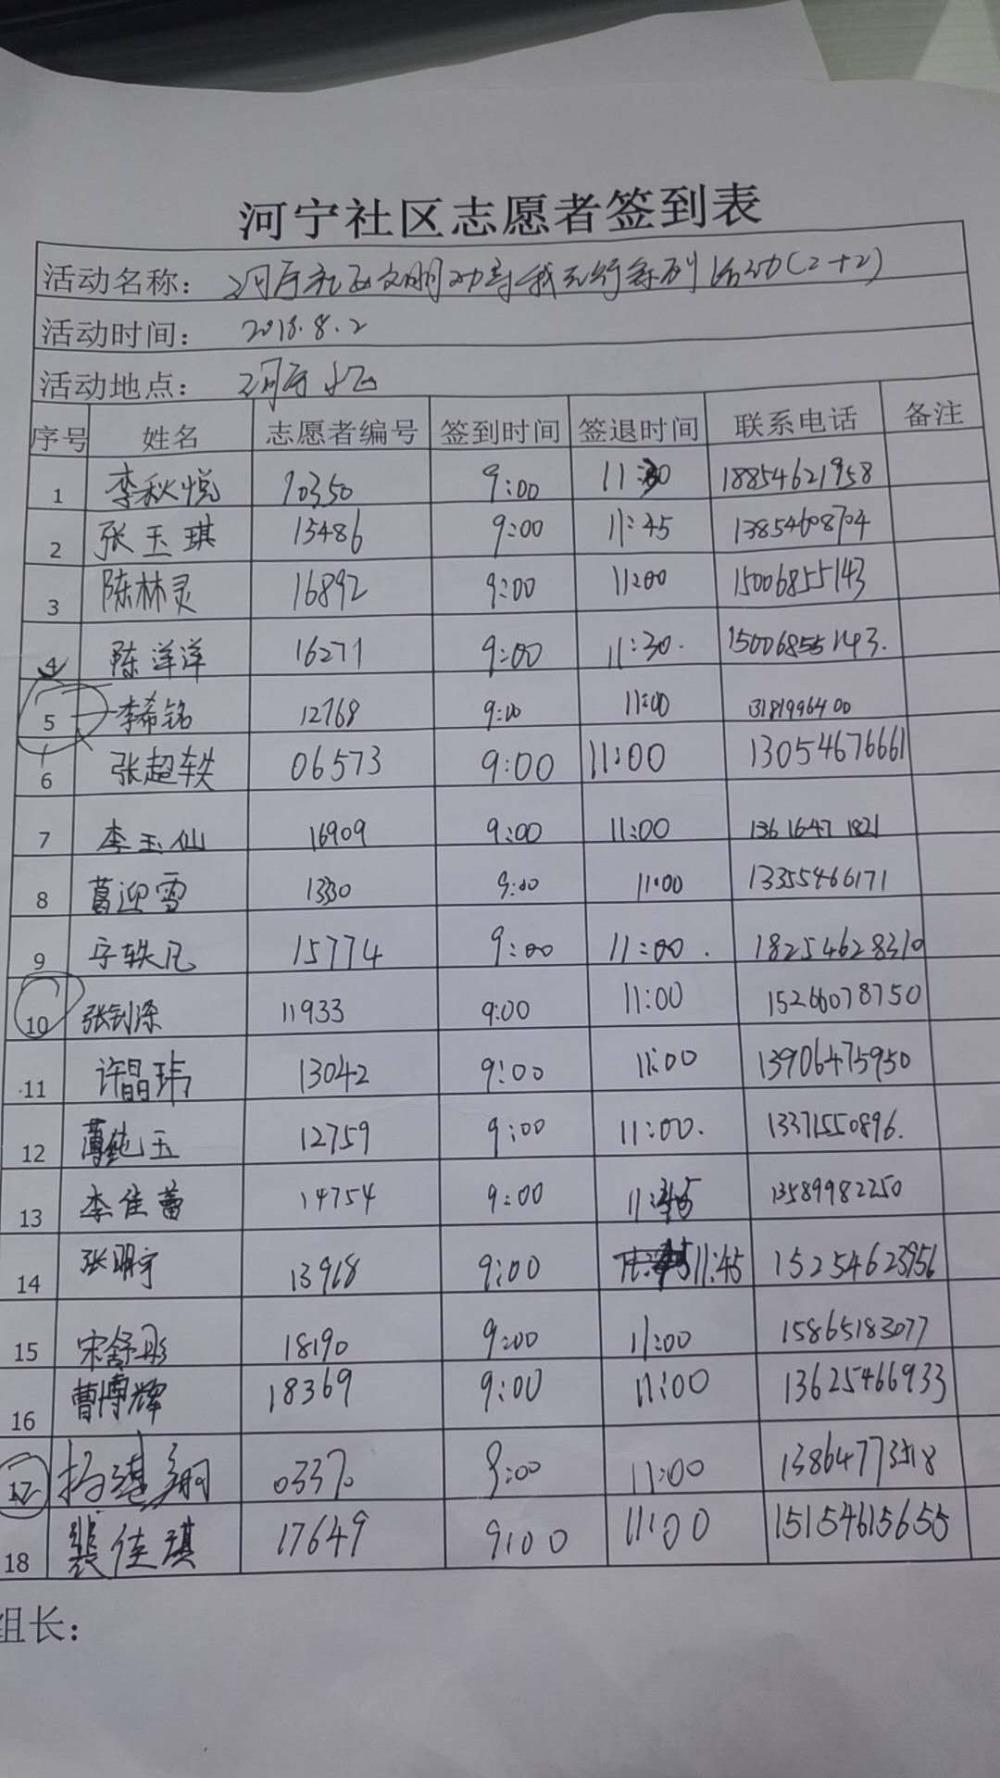 河宁社区志愿者签到表
活动名称：河宁社区文明劝导我先行系列活动(2+2)
活动时间：2018.8.2
活动地点：河宁小区
序号 姓名 志愿者编号 签到时间 签退时间 联系电话 备注
1 李秋悦 10350 9:00 11:30 18854621958
2 张玉琪 15486 9:00 11:45 13854608704
3 陈林灵 16892 9:00 11:00 15006855143
4 陈洋洋 16271 9:00 11:30. 15006855143.
5 李希铭 12768 9:00 11:00 3181996400
6 张超轶 06573 9:00 11:00 13054676661
7 李玉仙 16909 9:00 11:00 13616471821
8 葛迎雪 1330 9:00 11:00 13355466171
9 轶凡 15774 9:00 11:00. 18254628310
10 张钊涤 11933 9:00 11:00 15266078750
11 许晶玮 13042 9:00 11:00 13906475950
12 薄纯玉 12759 9:00 11:00. 13371550896.
13 李佳蕾 14754 9:00 11:45 13589982250
14 张明宇 13968 9:00 11:45 15254623956
15 宋舒彤 18190 9:00 11:00 15865183077
16 曹博辉 18369 9:00 11:00 13625466933
17 杨湛翔 03370 9:00 11:00
18 裴佳琪 17649 9:00 11:00 15154615655
组长：